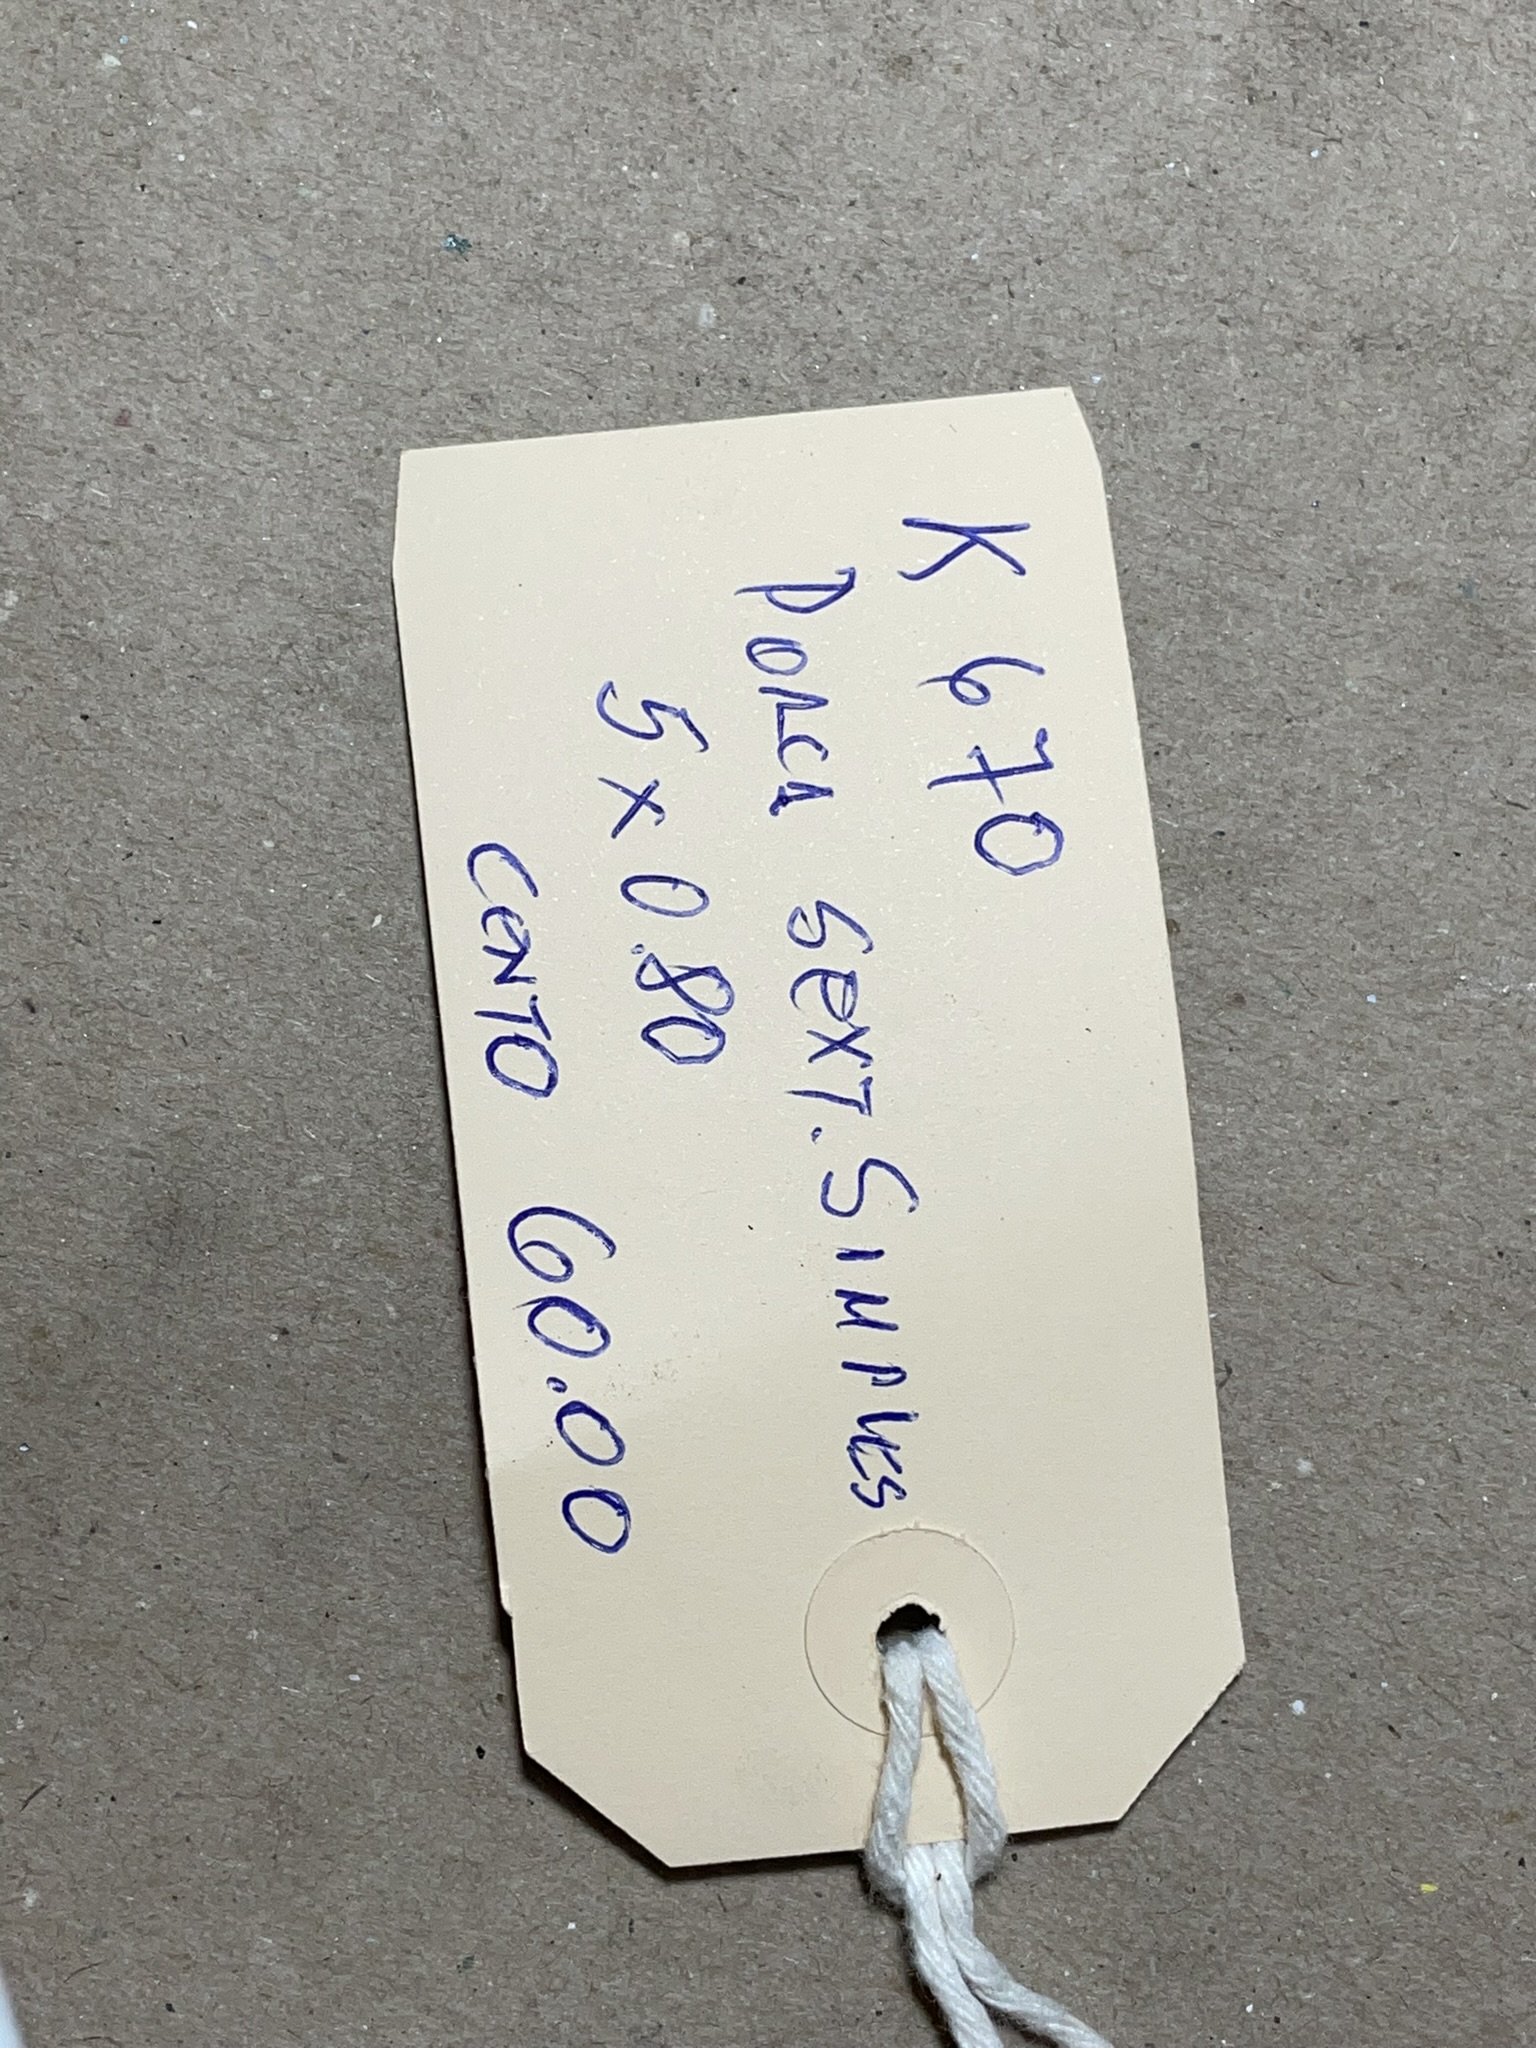 K 670
PORCA SEXT. SIMPLES
5 X 0.80
CENTO 60.00